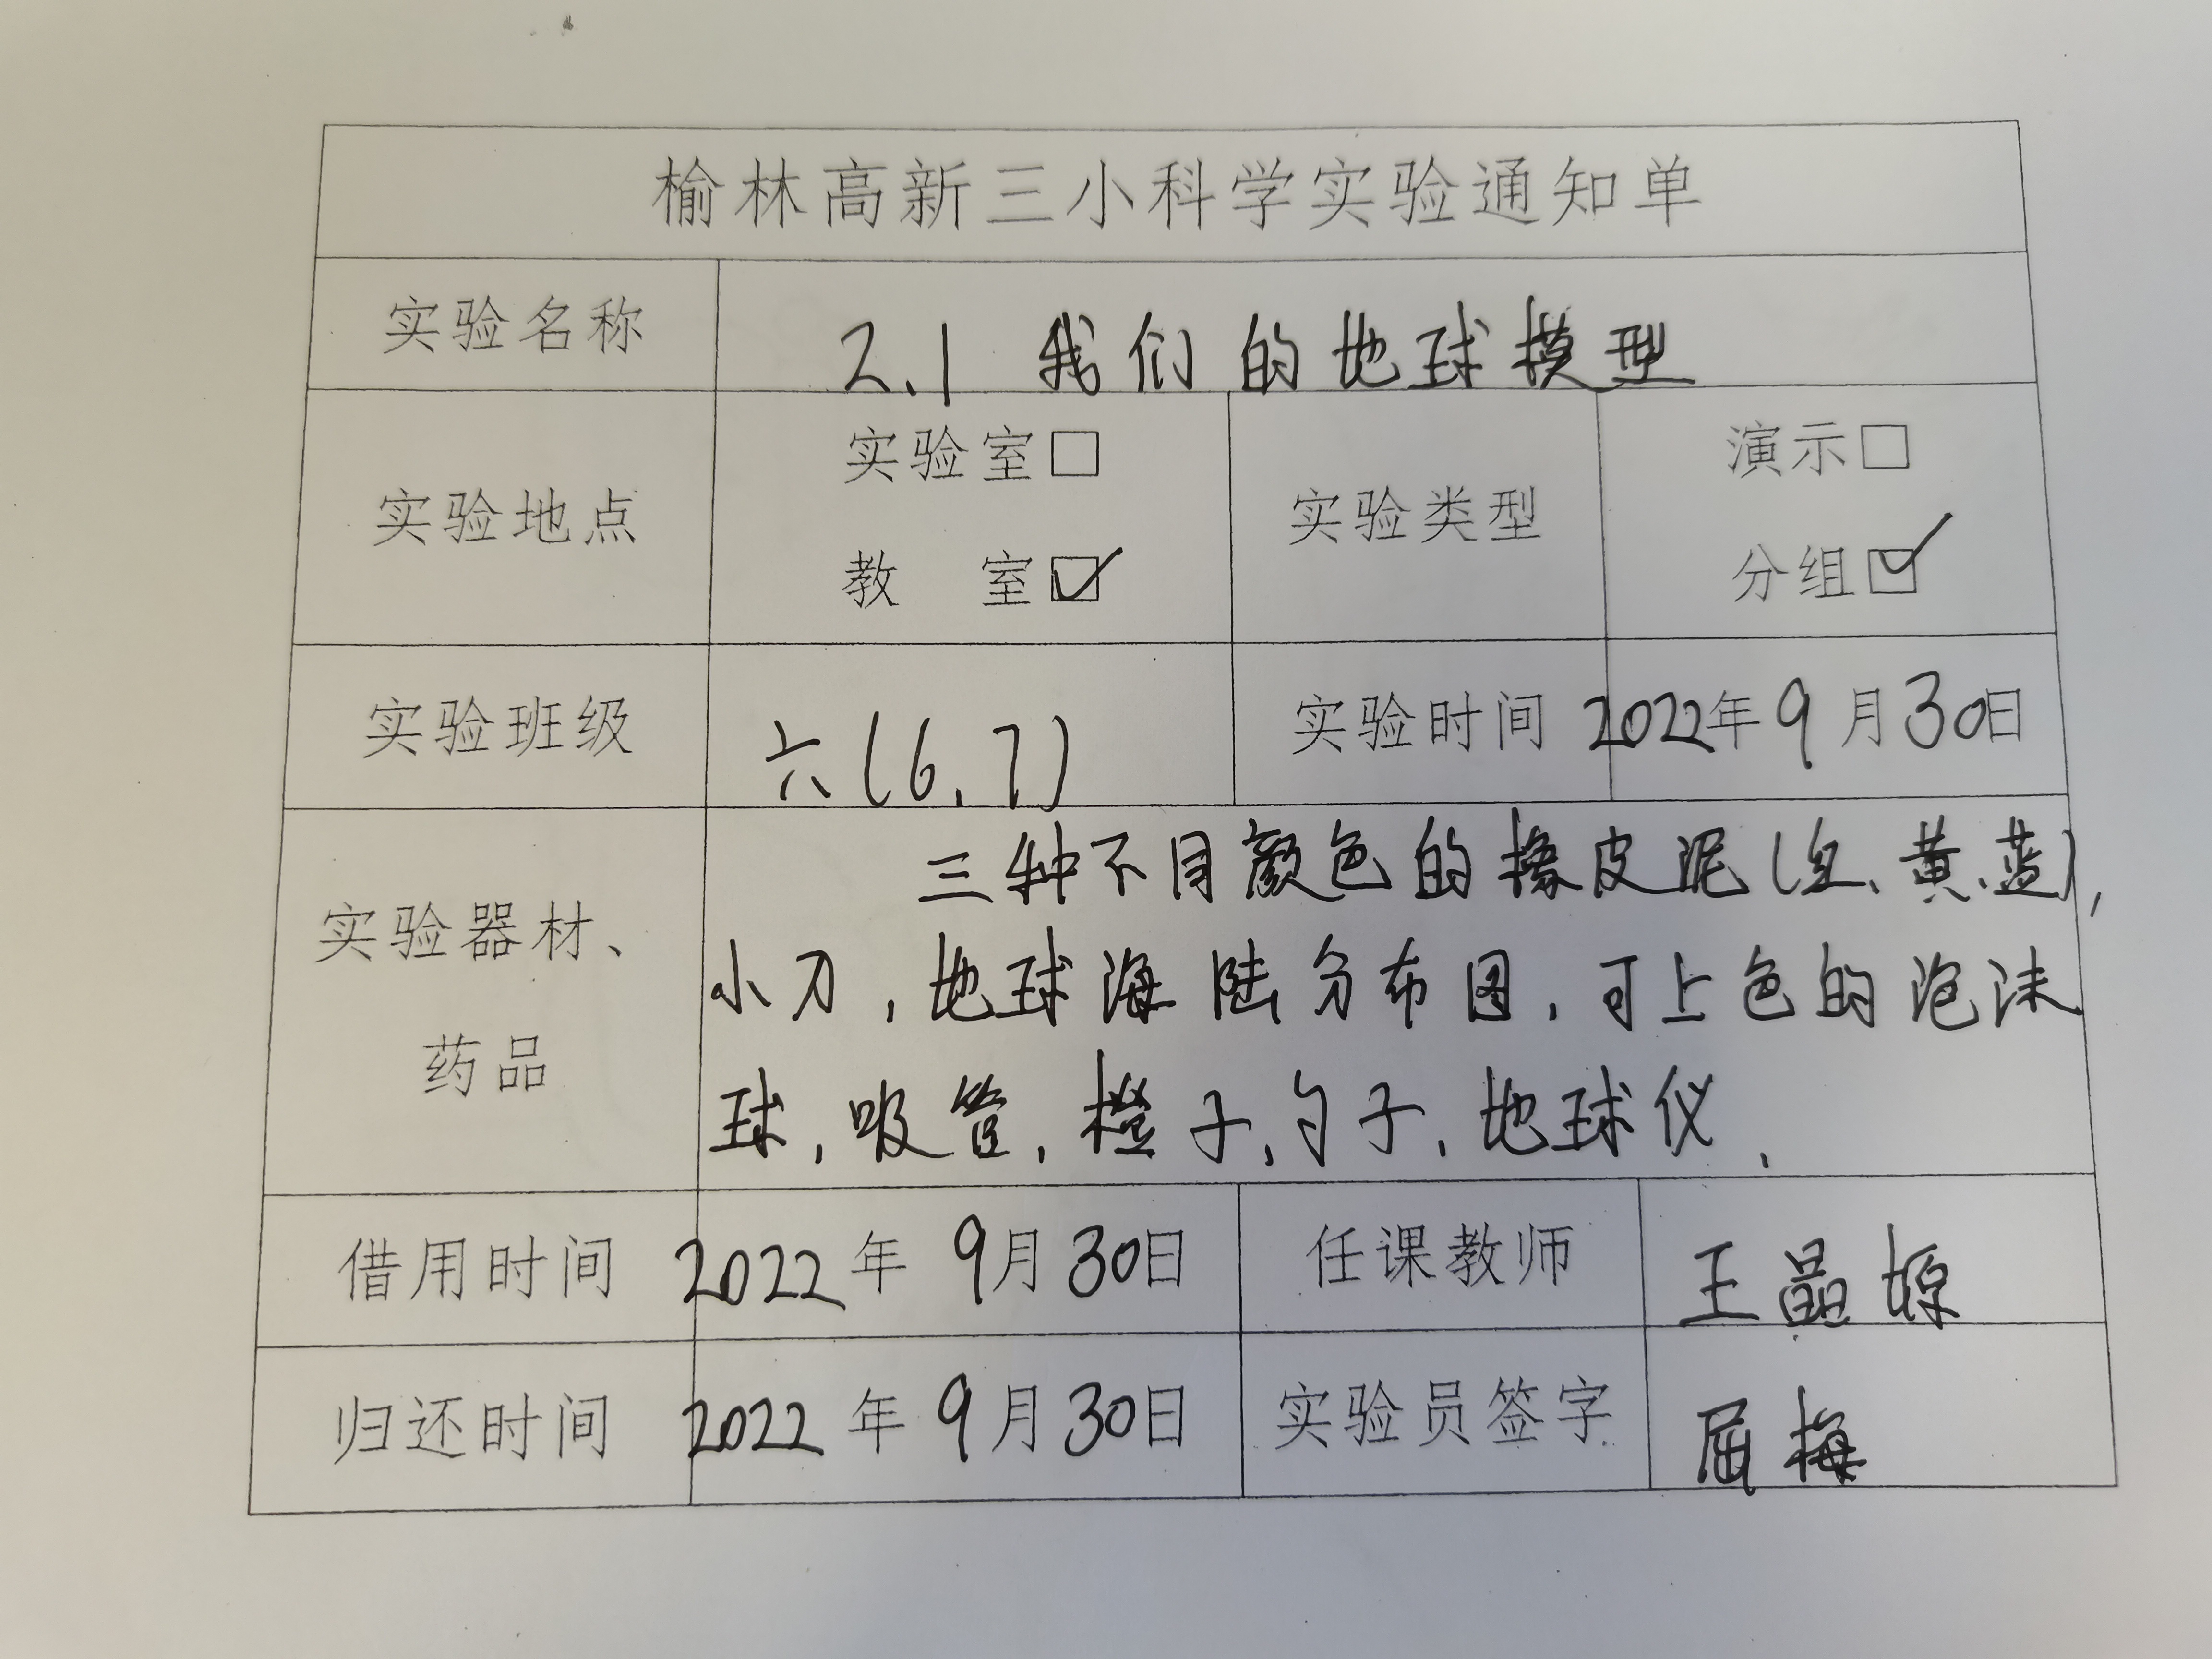 榆林高新三小科学实验通知单
实验名称 2.1 我们的地球模型
实验室□ 演示□
实验地点 实验类型
教 室☑ 分组☑
实验班级 六(6、7) 实验时间 2022年9月30日
三种不同颜色的橡皮泥(红、黄、蓝),
实验器材、
小刀,地球海陆分布图,可上色的泡沫
药品
球,吸管,橙子,勺子,地球仪,
借用时间 2022年9月30日 任课教师 王晶
归还时间 2022年9月30日 实验员签字 屈梅